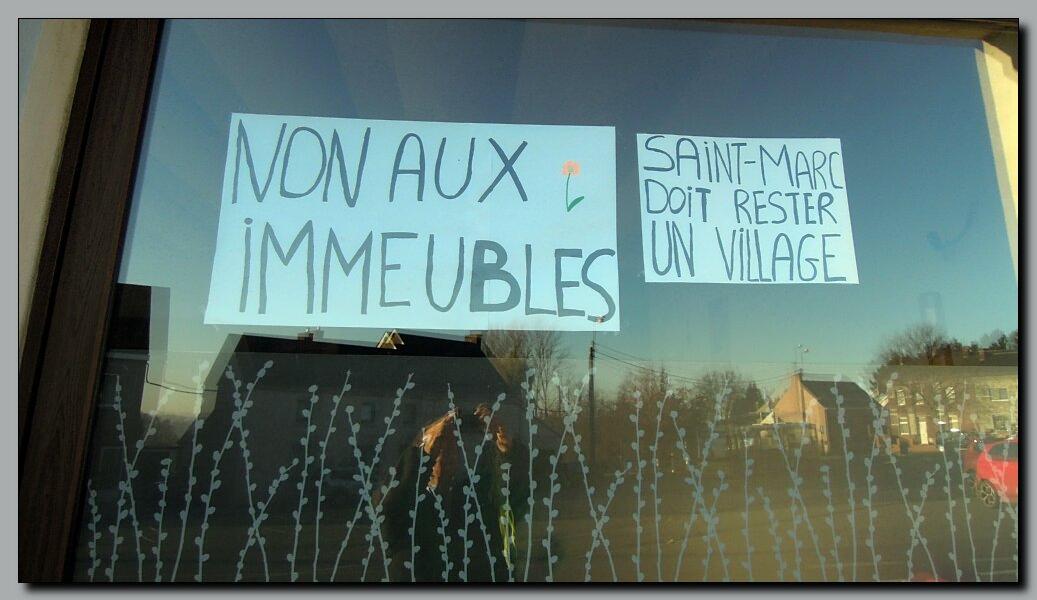 NON AUX
iMMEUBLES
SAiNT-MARC
DOiT RESTER
UN ViLLAGE